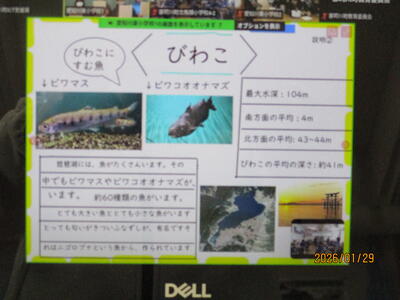 愛知川東小学校1の画面を表示しています
オプションを表示
びわこに
すむ魚
びわこ
説明②
↓ビワマス
↓ビワコオオナマズ
最大水深：104m
南方面の平均：4m
北方面の平均：43~44m
びわこの平均の深さ：約41m
琵琶湖には、魚がたくさんいます。その
中でもビワマスやビワコオオナマズが、
います。 約60種類の魚がいます。
とても大きい魚ととても小さな魚がいます
とっても匂いがきついふなずしが、有名ですそ
れはニゴロブナという魚から、作られています
DELL
2026/01/29